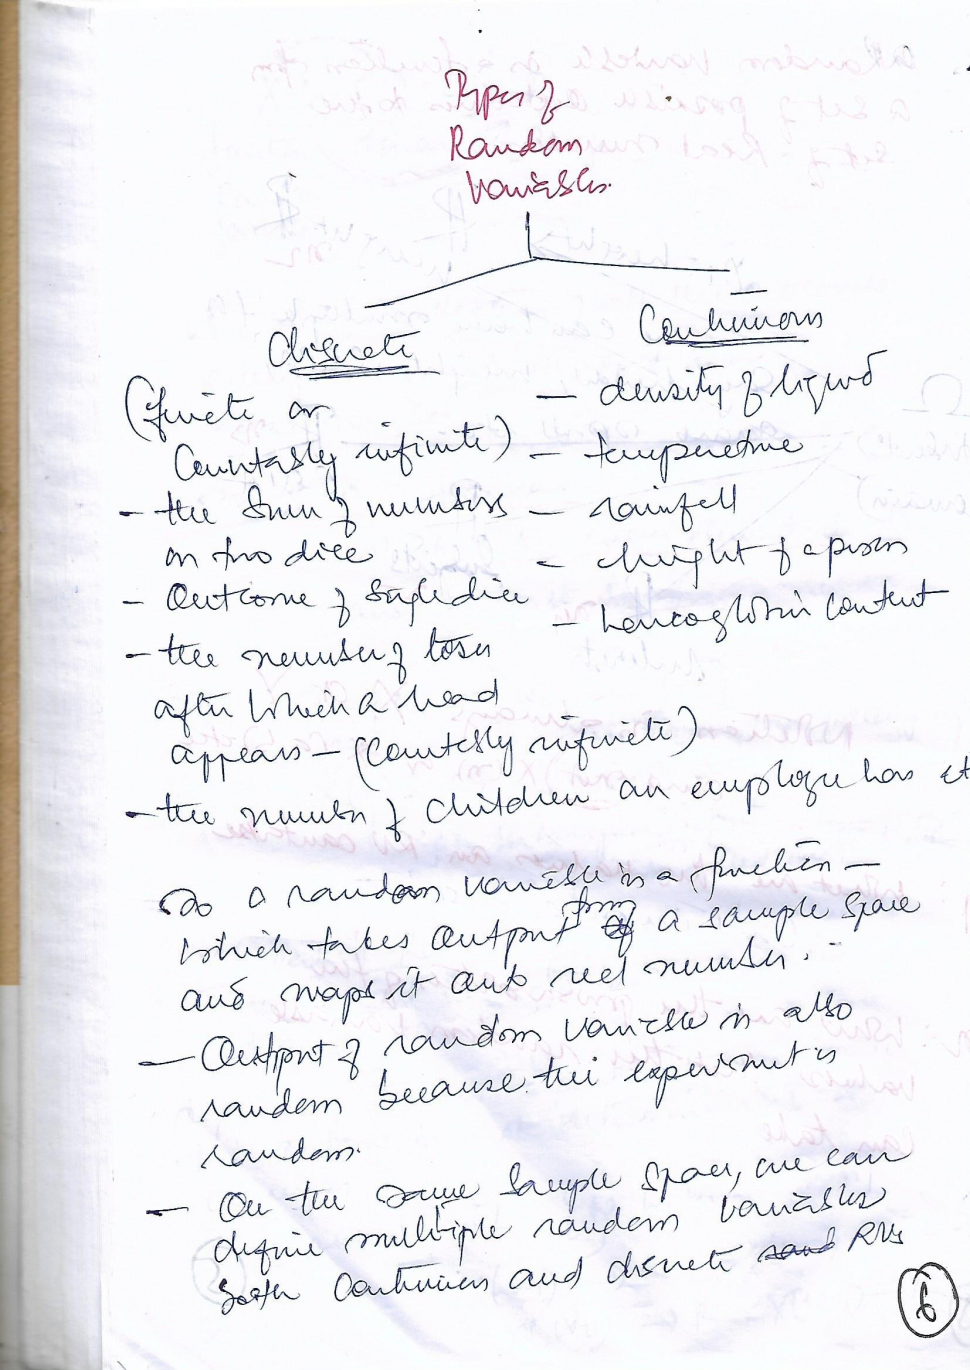 Types of
Random
Variables.
Discrete
(finite or
Countably infinite)
- the sum of numbers
on two dice
- Outcome of single dice
- the number of tosses
after which a head
appears - (countably infinite)
- the number of children an employee has
Continuous
- density of liquid
- temperature
- rainfall
- height of a person
- content
So a random variable is a function -
which takes output from a sample space
and maps it onto real number.
- Output of random variable is also
random because the experiment is
random.
- On the same sample space, we can
define multiple random variables
both continuous and discrete RVs
6